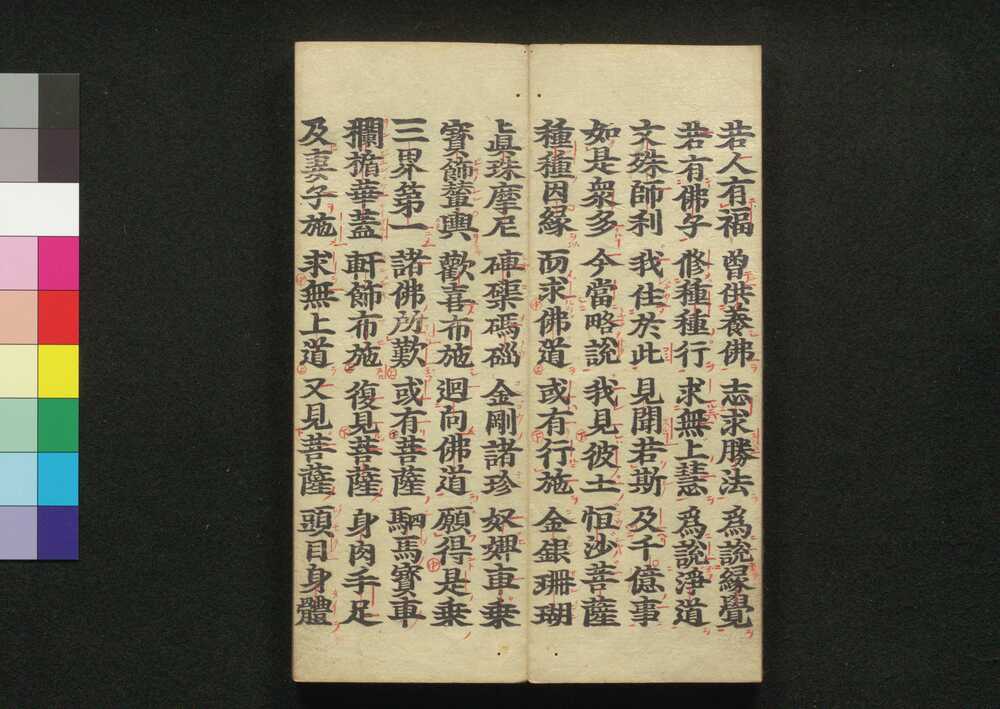 若人有福 曾供養佛 志求勝法 為說緣覺
若有佛子 修種種行 求無上慧 為說淨道
文殊師利 我住於此 見聞若斯 及千億事
如是衆多 今當略說 我見彼土 恒沙菩薩
種種因緣 而求佛道 或有行施 金銀珊瑚
眞珠摩尼 硨磲碼碯 金剛諸珍 奴婢車乗
寳飾輦輿 歡喜布施 迴向佛道 願得是乗
三界第一 諸佛所歎 或有菩薩 駟馬寳車
欄楯華蓋 軒飾布施 復見菩薩 身肉手足
及妻子施 求無上道 又見菩薩 頭目身體